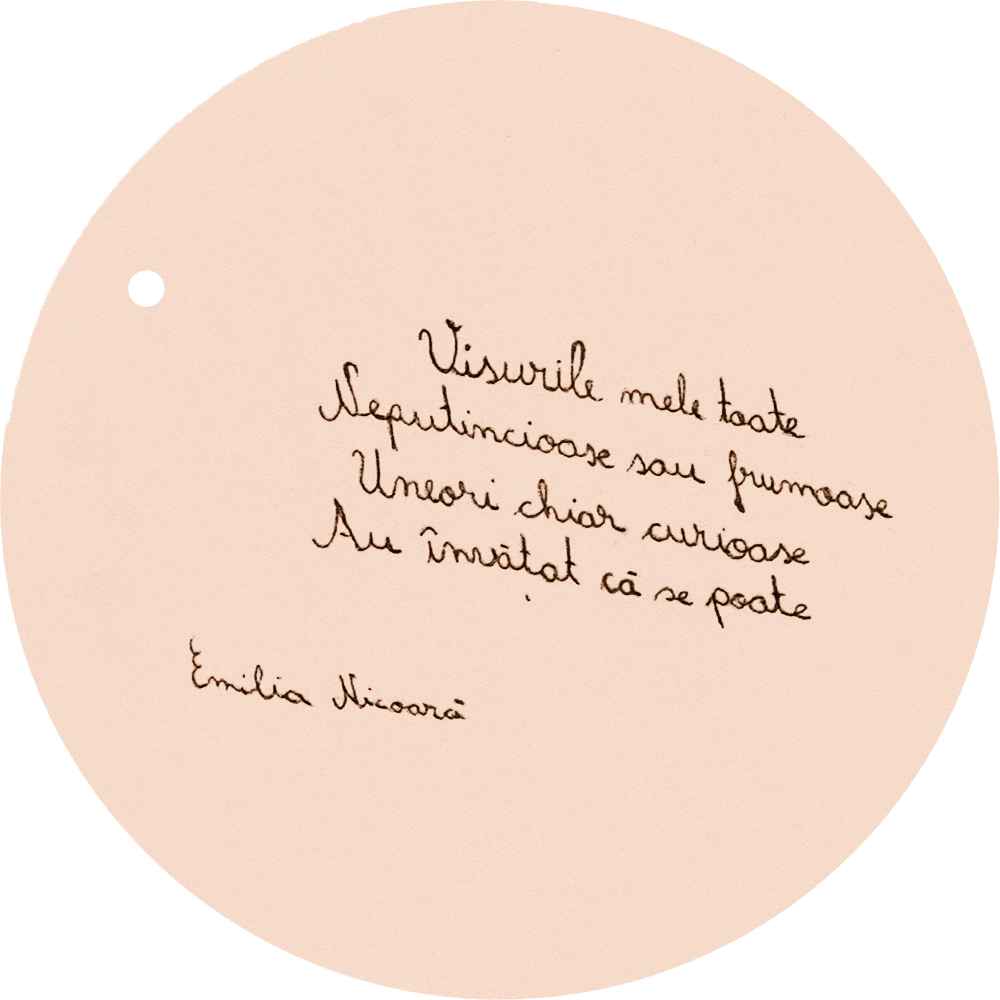 Visurile mele toate
Neputincioase sau frumoase
Uneori chiar curioase
Au învățat că se poate
Emilia Nicoară